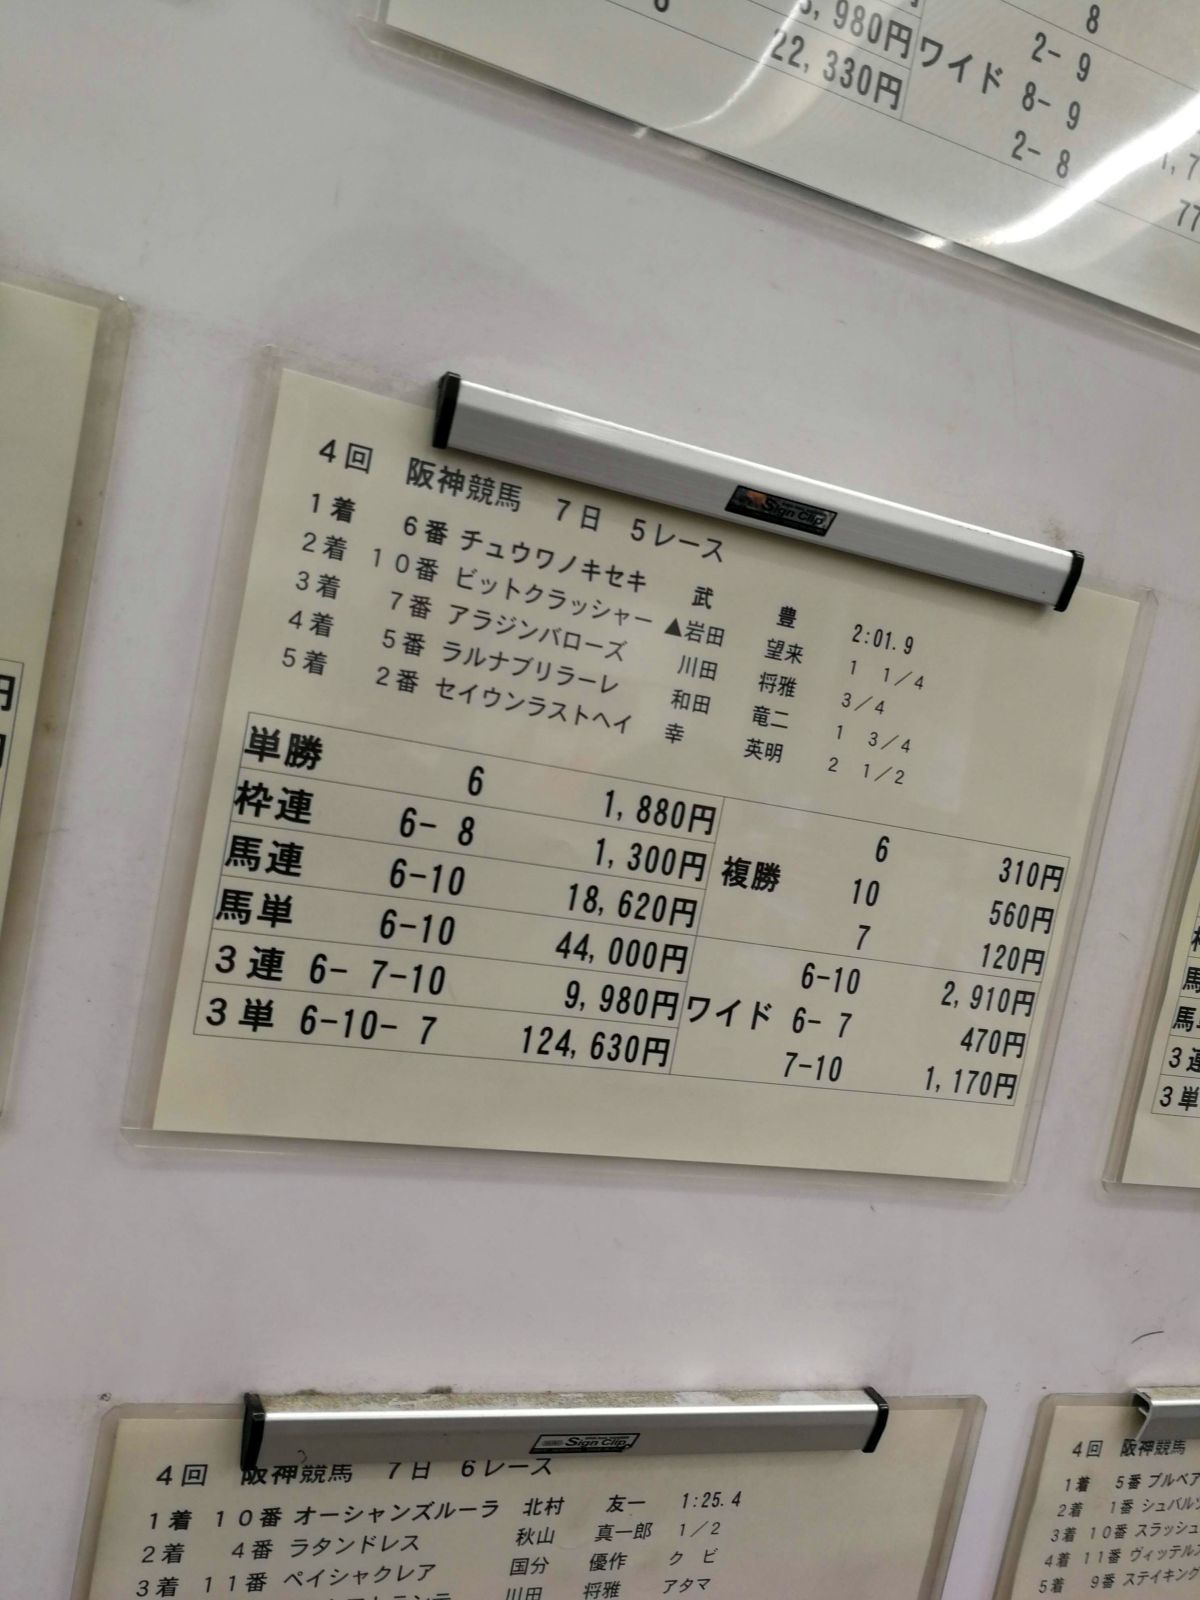 8
2- 9
980円
ワイド 8- 9
22,330円
2- 8
77
4回 阪神競馬 7日 5レース
1着 6番 チュウワノキセキ 武 豊 2:01.9
2着 10番 ビットクラッシャー ▲岩田 望来 1 1/4
3着 7番 アラジンバローズ 川田 将雅 3/4
4着 5番 ラルナブリラーレ 和田 竜二 1 3/4
5着 2番 セイウンラストヘイ 幸 英明 2 1/2
単勝 6 1,880円
枠連 6- 8 1,300円
馬連 6-10 18,620円
馬単 6-10 44,000円
3連 6- 7-10 9,980円
3単 6-10- 7 124,630円
複勝 6 310円
10 560円
7 120円
ワイド 6-10 2,910円
6- 7 470円
7-10 1,170円
Sign Clip
円
馬
馬単
3連
3単
Sign Clip
4回 阪神競馬 7日 6レース
1着 10番 オーシャンズルーラ 北村 友一 1:25.4
2着 4番 ラタンドレス 秋山 真一郎 1/2
3着 11番 ペイシャクレア 国分 優作 クビ
川田 将雅 アタマ
4回 阪神競馬
1着 5番 ブルベア
2着 1番 シュバルツ
3着 10番 スラッシュ
4着 11番 ヴィッテルス
5着 9番 ステイキング